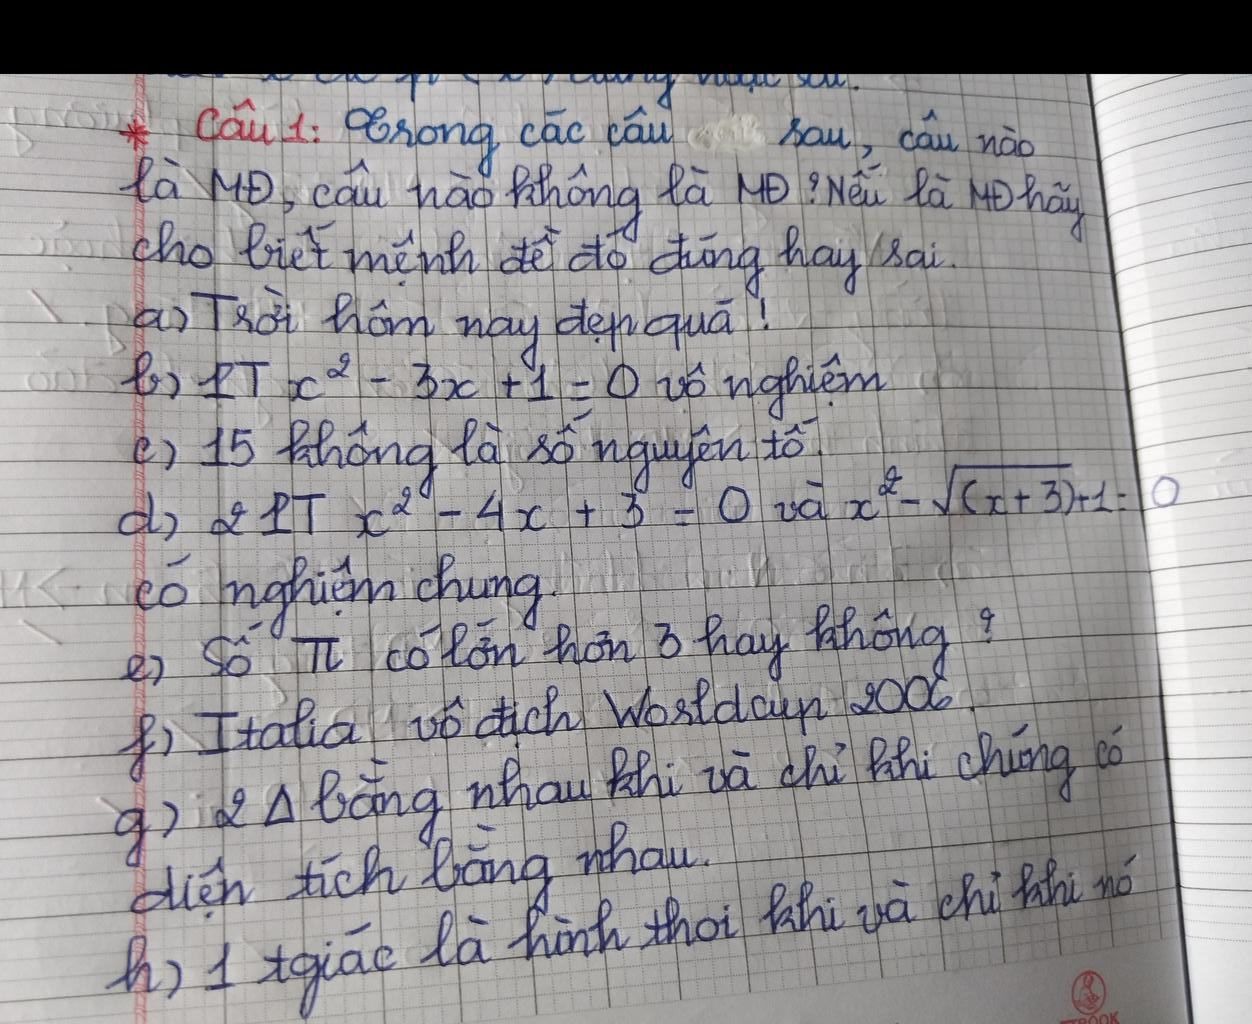 * Câu 1: Trong các câu sau, câu nào
là MĐ, câu nào không là MĐ? Nếu là MĐ hãy
cho biết mệnh đề đó đúng hay sai.
a) Trời hôm nay đẹp quá!
b) PT x² - 3x + 1 = 0 vô nghiệm
c) 15 không là số nguyên tố.
d) 2 PT x² - 4x + 3 = 0 và x² - √(x+3) + 1 = 0
có nghiệm chung.
e) Số π có lớn hơn 3 hay không?
f) Italia vô địch Worldcup 2006.
g) 2 Δ bằng nhau khi và chỉ khi chúng có
diện tích bằng nhau.
h) 1 tgiác là hình thoi khi và chỉ khi nó